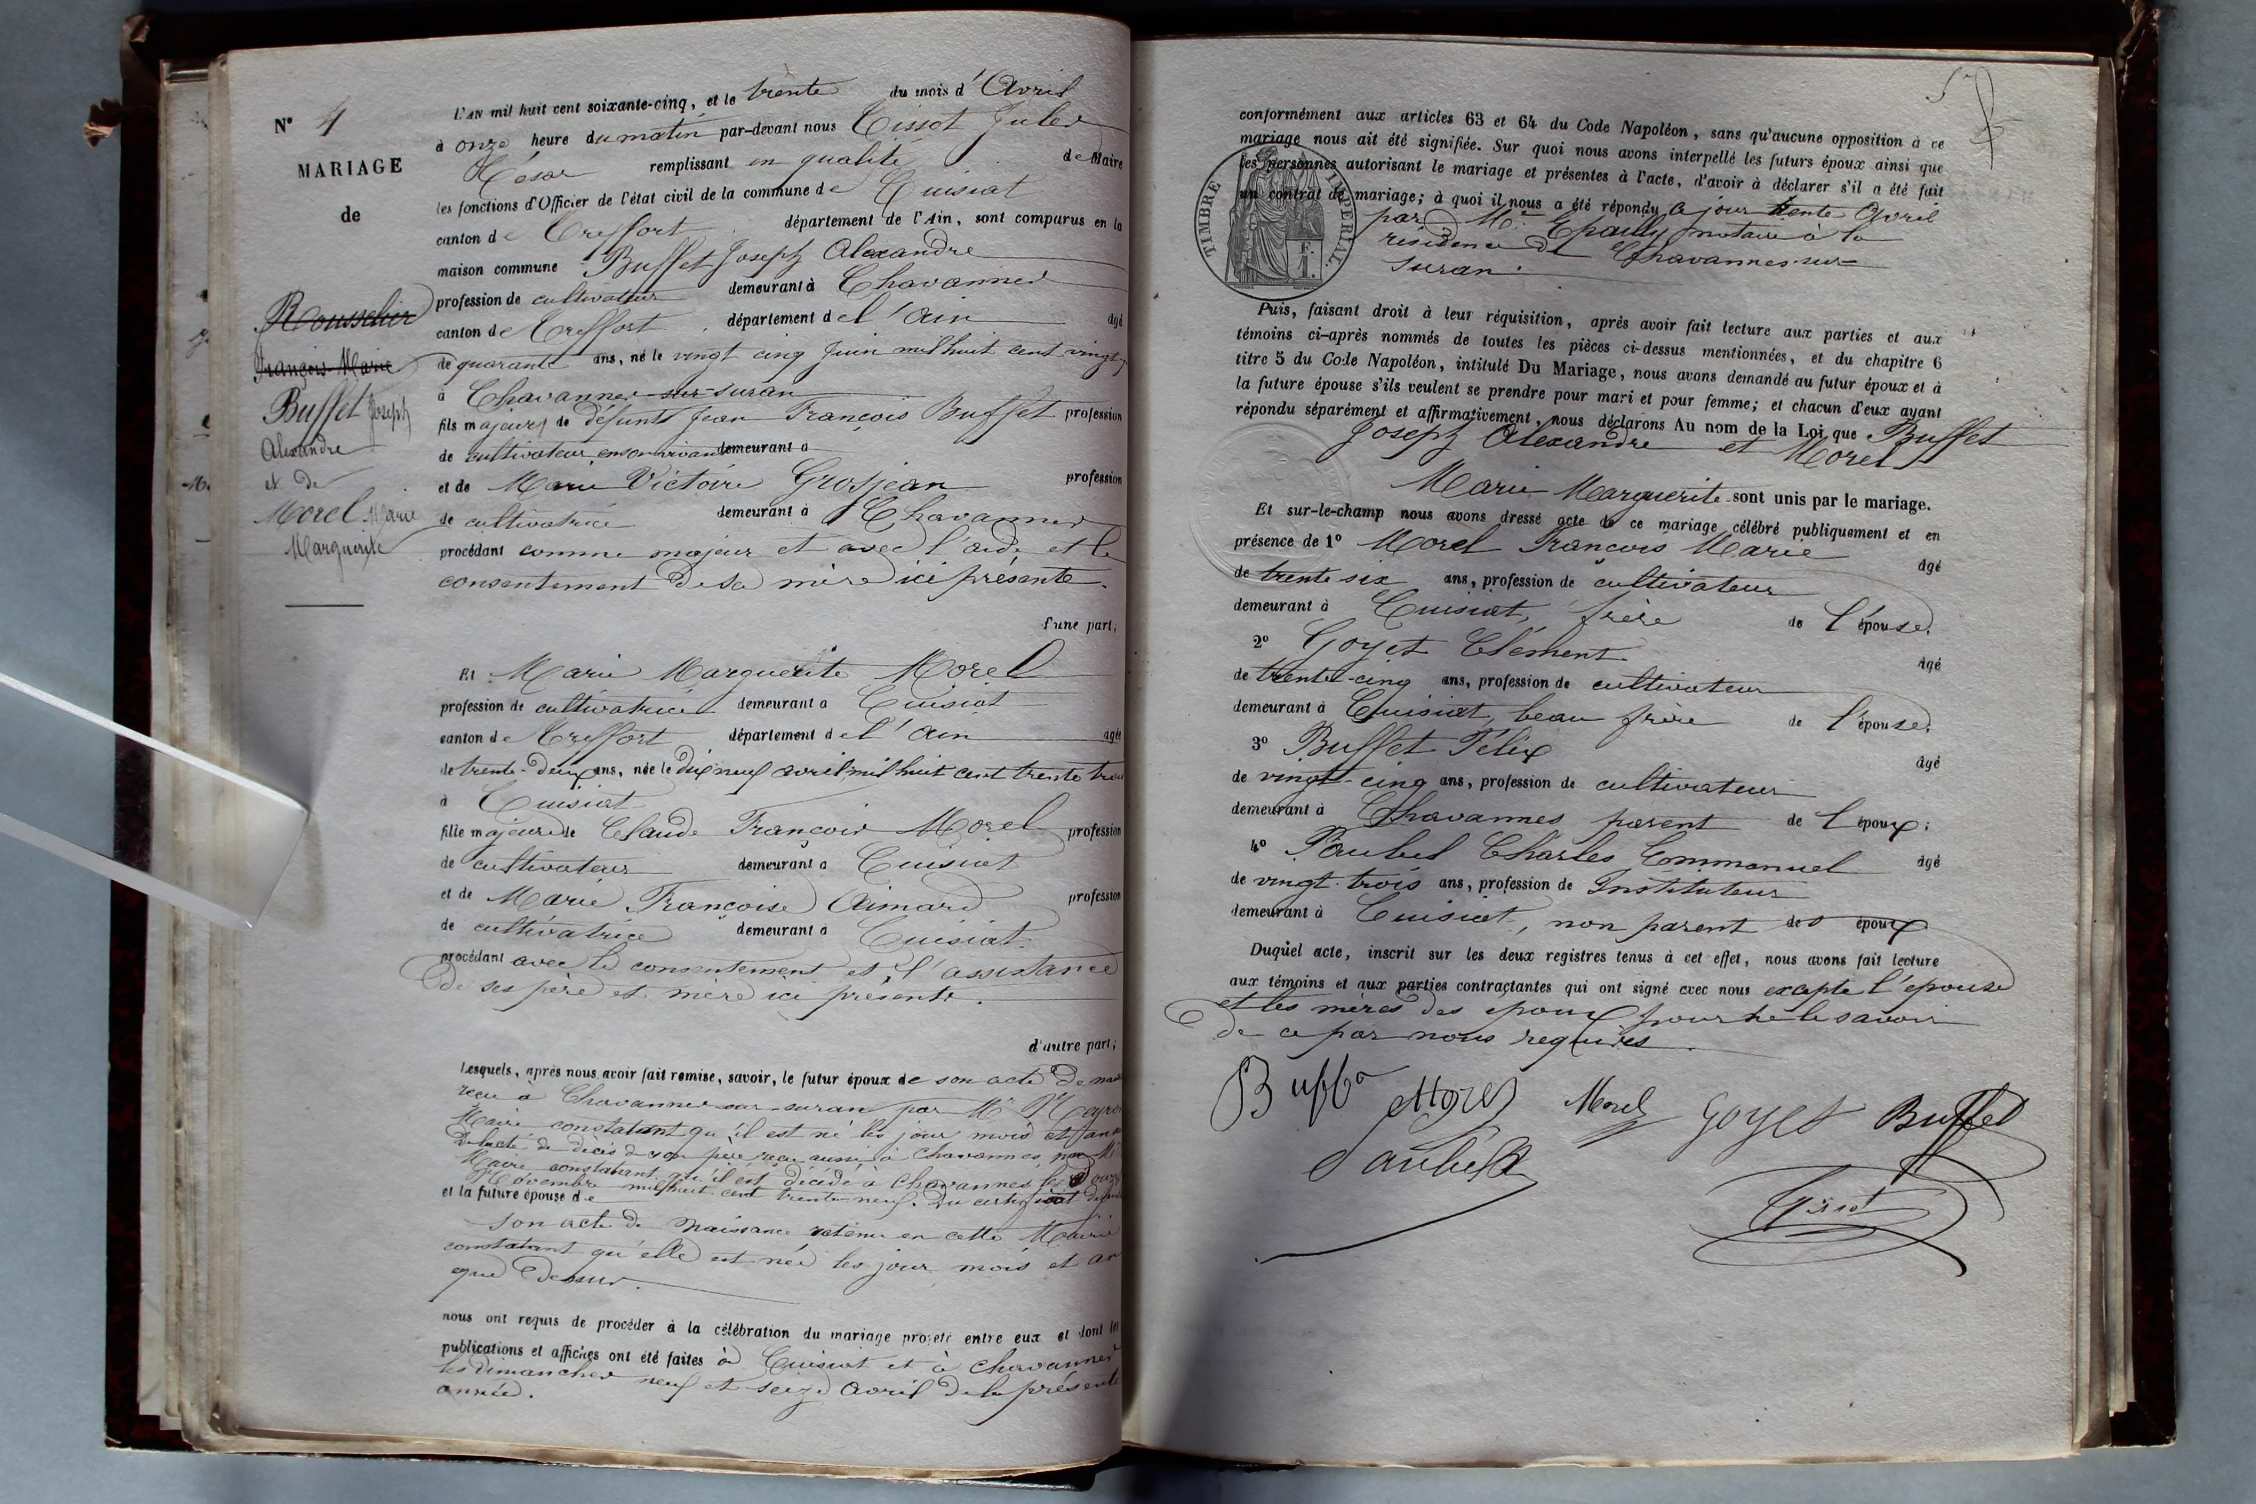 N° 4
MARIAGE
de
Rousselier
François Marie
Buffet Joseph
Alexandre
et de
Morel Marie
Marguerite
L'AN mil huit cent soixante-cinq, et le trente du mois d'Avril
à onze heure du matin par-devant nous Tissot Jules
César remplissant en qualité de Maire
les fonctions d'Officier de l'état civil de la commune de Cuisiat
canton de Treffort département de l'Ain, sont comparus en la
maison commune Buffet Joseph Alexandre
profession de cultivateur demeurant à Chavannes
canton de Treffort département de l'Ain âgé
de quarante ans, né le vingt cinq Juin mil huit cent vingt
à Chavannes-sur-suran
fils majeur de défunt Jean François Buffet profession
de cultivateur en son vivant demeurant à
et de Marie Victoire Grosjean profession
de cultivatrice demeurant à Chavannes
procédant comme majeur et avec l'aide et le
consentement de sa mère ici présente.
d'une part;
Et Marie Marguerite Morel
profession de cultivatrice demeurant à Cuisiat
canton de Treffort département de l'Ain agée
de trente-deux ans, née le dix neuf avril mil huit cent trente trois
à Cuisiat
fille majeure de Claude François Morel profession
de cultivateur demeurant à Cuisiat
et de Marie Françoise Aimard profession
de cultivatrice demeurant à Cuisiat
procédant avec le consentement et l'assistance
de ses père et mère ici présents.
d'autre part;
Lesquels, après nous avoir fait remise, savoir, le futur époux de son acte de
reçu à Chavannes-sur-suran par Mr
Maire constatant qu'il est né les jour mois et an
de l'acte de décès de son père reçu aussi à Chavannes, par Mr
Maire constatant qu'il est décédé à Chavannes le douze
Novembre mil huit cent trente-neuf. Du certificat
et la future épouse de
son acte de Naissance retenu en cette Mairie
constatant qu'elle est née les jour mois et an
que dessus.
nous ont requis de procéder à la célébration du mariage projeté entre eux et dont les
publications et affiches ont été faites à Cuisiat et à Chavannes
les dimanches neuf et seize Avril de la présente
année.
5
conformément aux articles 63 et 64 du Code Napoléon, sans qu'aucune opposition à ce
mariage nous ait été signifiée. Sur quoi nous avons interpellé les futurs époux ainsi que
les personnes autorisant le mariage et présentes à l'acte, d'avoir à déclarer s'il a été fait
un contrat de mariage; à quoi il nous a été répondu ce jour trente Avril
par Me Epailly notaire à la
résidence de Chavannes-sur-
suran.
TIMBRE IMPÉRIAL.
Puis, faisant droit à leur réquisition, après avoir fait lecture aux parties et aux
témoins ci-après nommés de toutes les pièces ci-dessus mentionnées, et du chapitre 6
titre 5 du Code Napoléon, intitulé Du Mariage, nous avons demandé au futur époux et à
la future épouse s'ils veulent se prendre pour mari et pour femme; et chacun d'eux ayant
répondu séparément et affirmativement, nous déclarons Au nom de la Loi que Buffet
Joseph Alexandre et Morel
Marie Marguerite sont unis par le mariage.
Et sur-le-champ nous avons dressé acte de ce mariage célébré publiquement et en
présence de 1° Morel François Marie âgé
de trente six ans, profession de cultivateur
demeurant à Cuisiat, frère de l'épouse;
2° Goyet Clément âgé
de trente-cinq ans, profession de cultivateur
demeurant à Cuisiat, beau frère de l'épouse;
3° Buffet Félix âgé
de vingt-cinq ans, profession de cultivateur
demeurant à Chavannes parent de l'époux;
4° Paubel Charles Emmanuel âgé
de vingt-trois ans, profession de Instituteur
demeurant à Cuisiat, non parent des époux
Duquel acte, inscrit sur les deux registres tenus à cet effet, nous avons fait lecture
aux témoins et aux parties contractantes qui ont signé avec nous excepté l'épouse
et les mères des époux pour ne le savoir
de ce par nous requises.
Morel Morel Goyet Buffet
Tissot